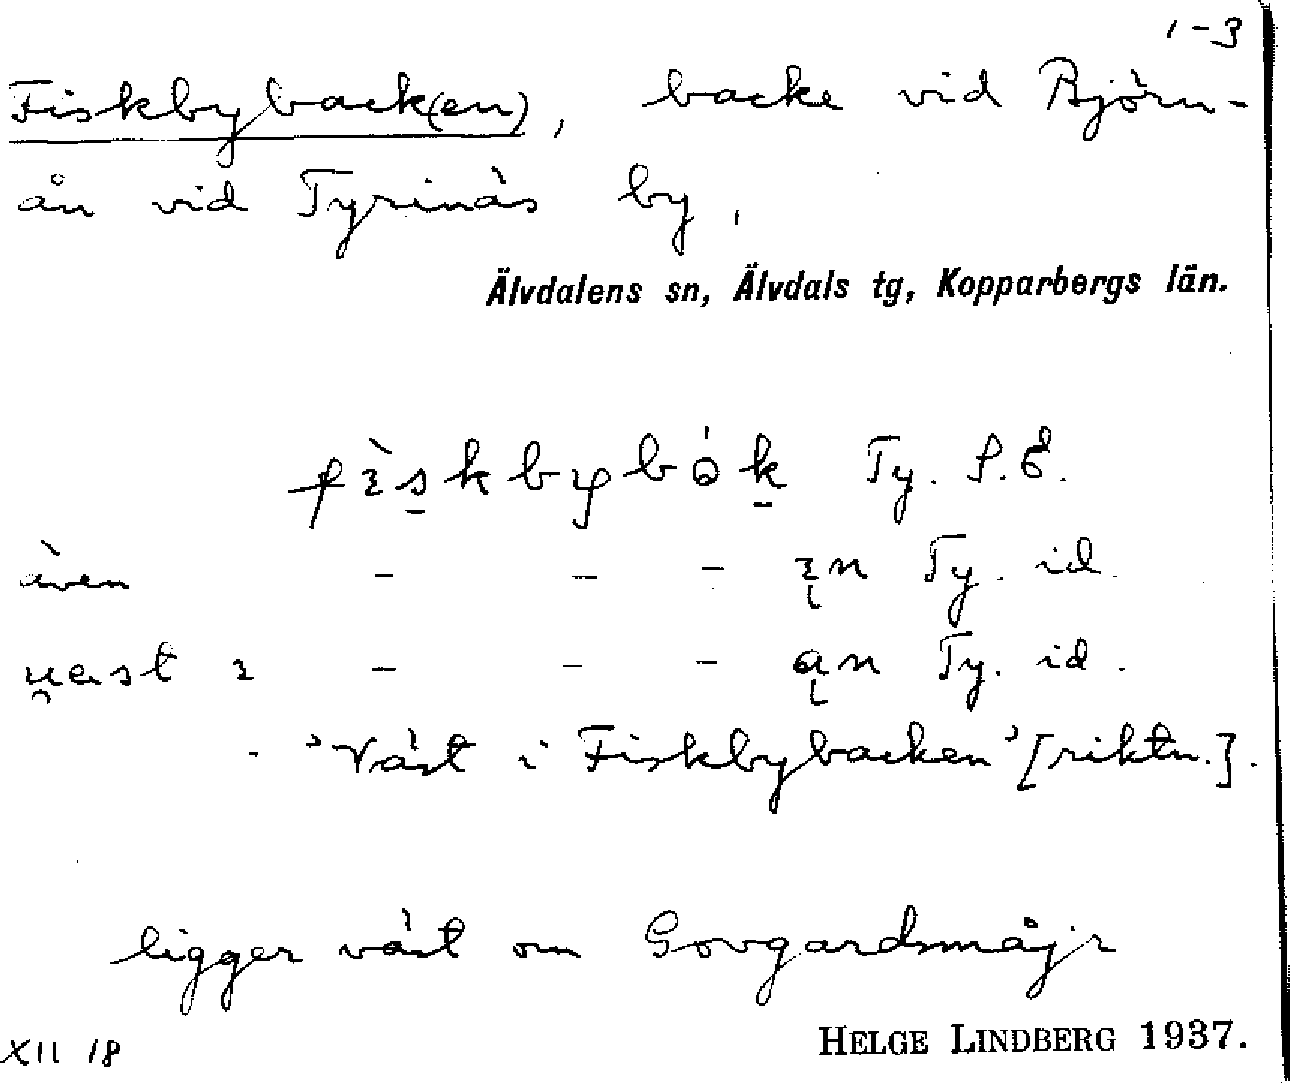 1-3
Fiskbyback(en), backe vid Björn-
ån vid Tyrinäs by.
Älvdalens sn, Älvdals tg, Kopparbergs län.
fìskbybók Ty. P.E.
även - - - ɪn Ty. id.
u̯est ɪ - - - an Ty. id.
- 'Väst i Fiskbybacken' [riktn.].
ligger väst om Sovgardsmåjr
XII 18
HELGE LINDBERG 1937.